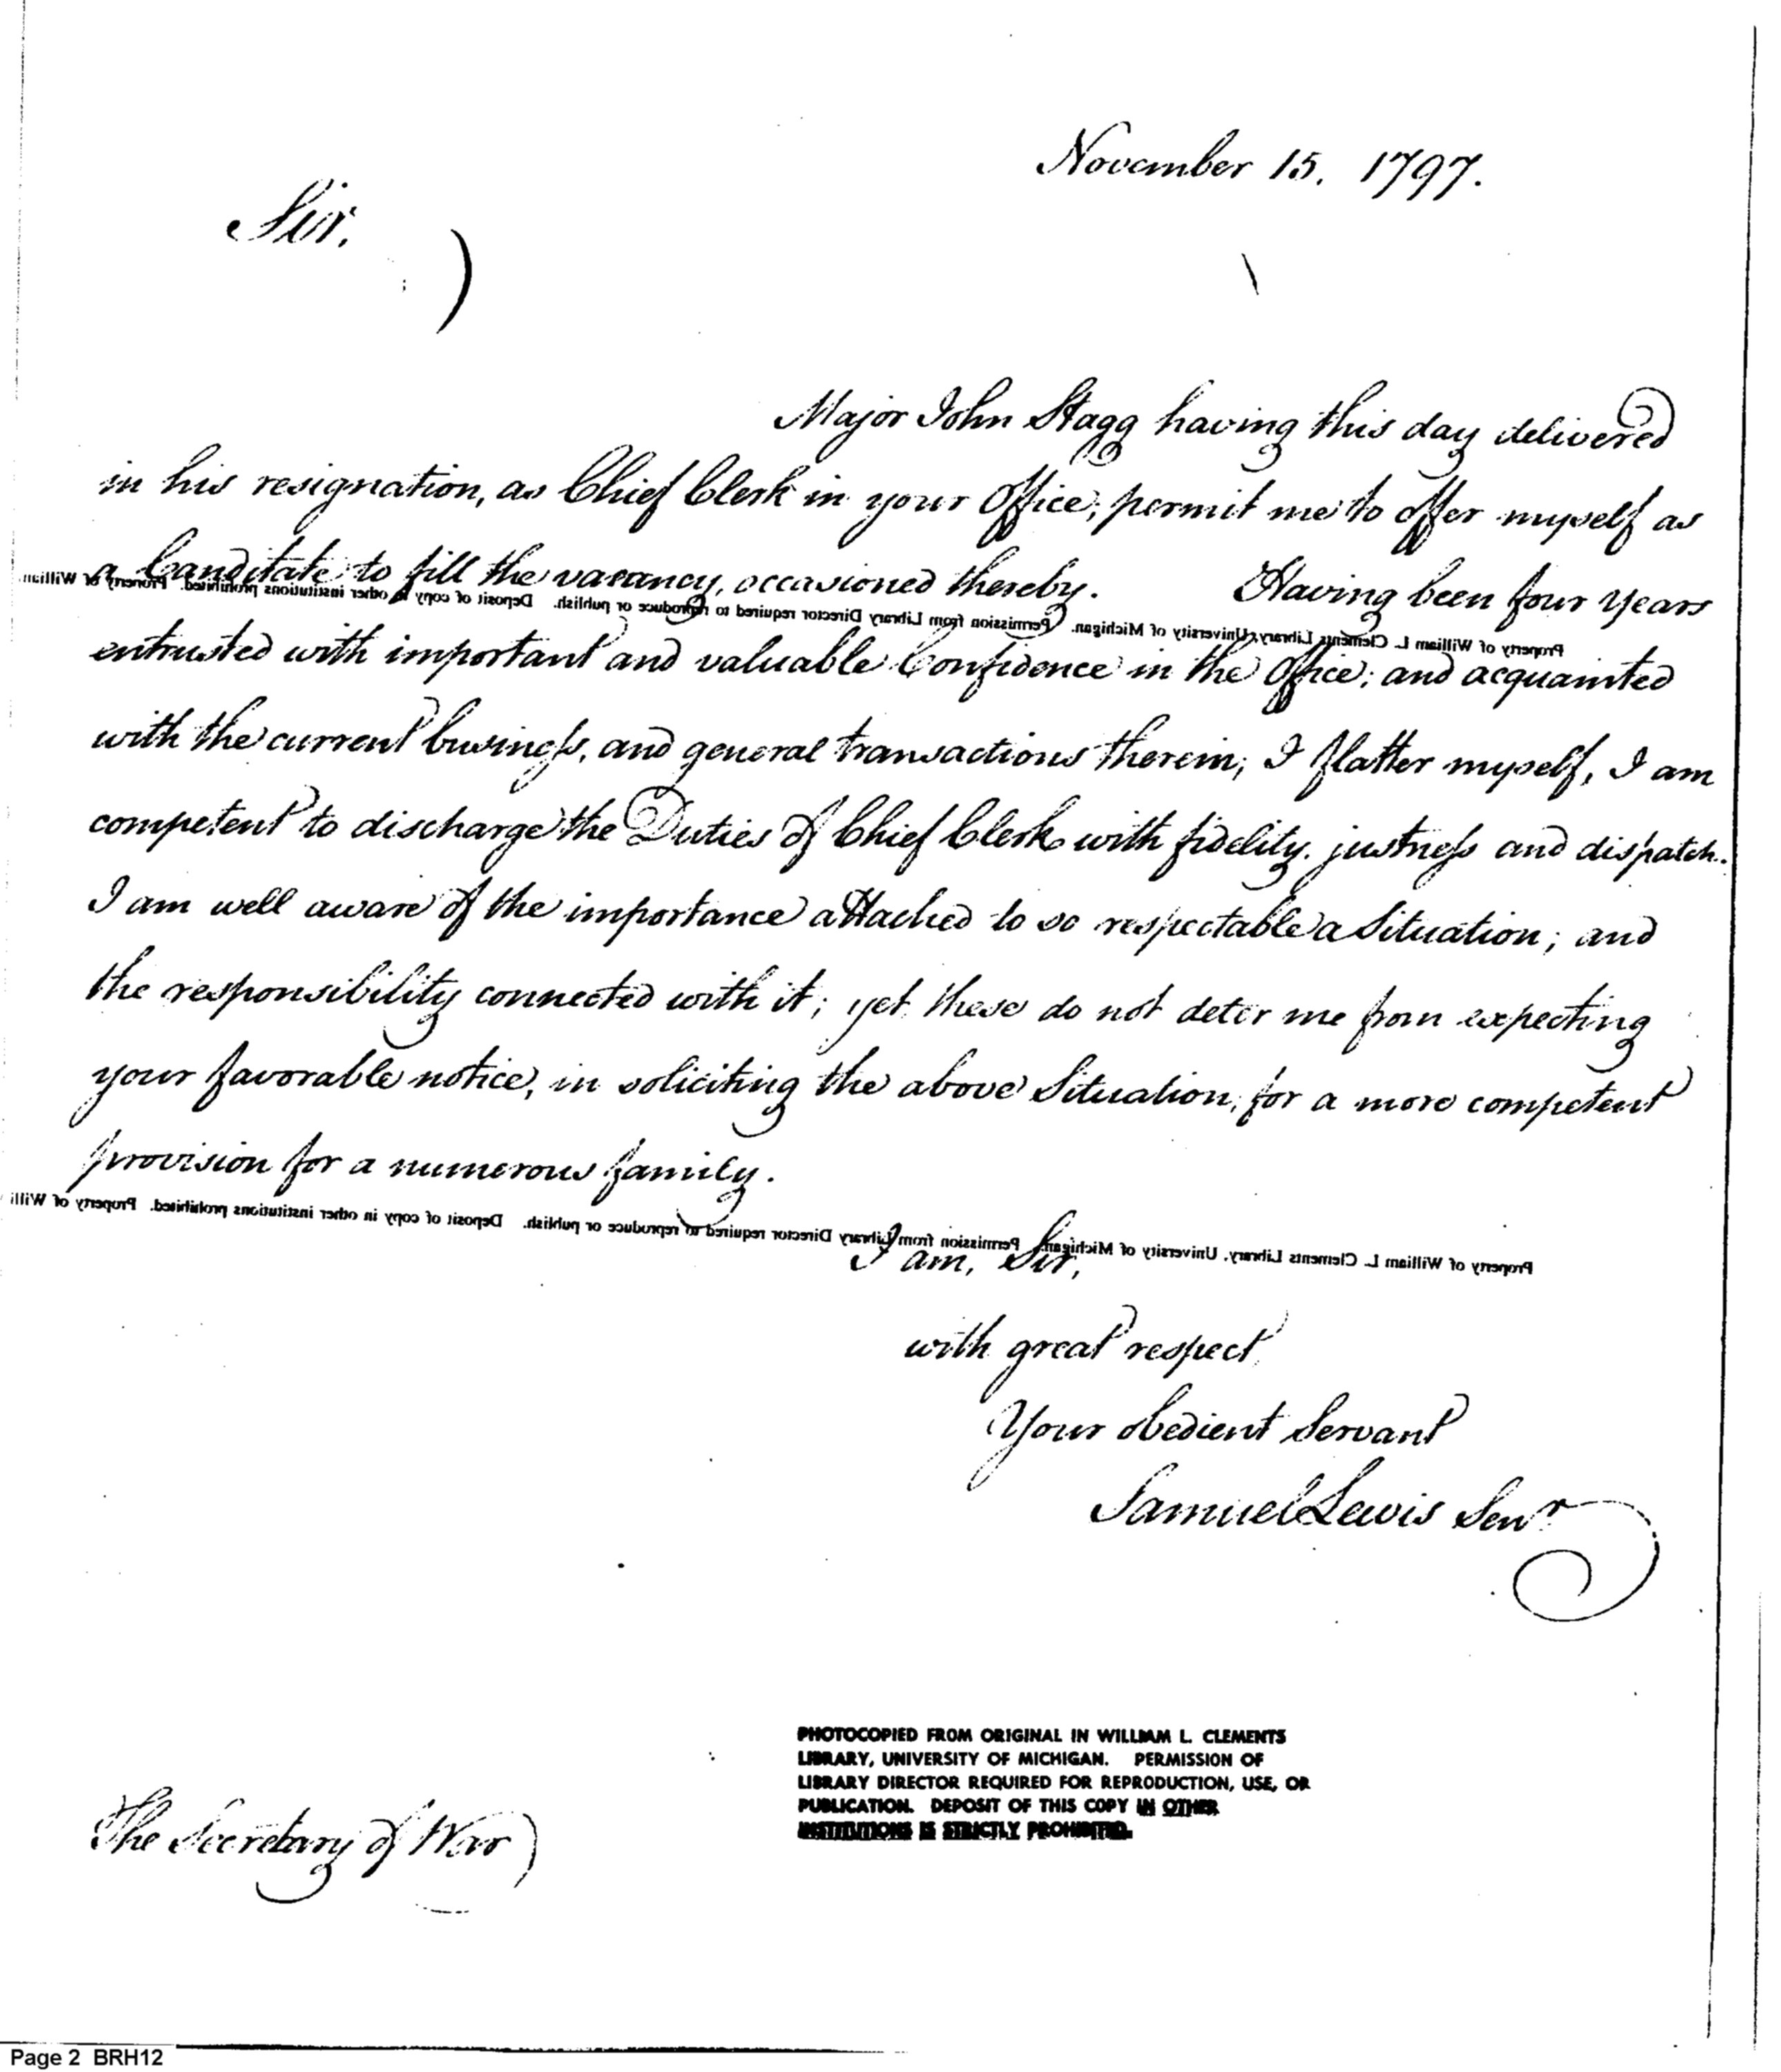 November 15. 1797.
Sir,
Major John Stagg having this day delivered
in his resignation, as Chief Clerk in your Office, permit me to offer myself as
a Canditate to fill the vacancy, occasioned thereby. Having been four years
Property of William L. Clements Library, University of Michigan. Permission from Library Director required to reproduce or publish. Deposit of copy in other institutions prohibited. Property of William
entrusted with important and valuable Confidence in the Office; and acquainted
with the current business, and general transactions therein, I flatter myself, I am
competent to discharge the Duties of Chief Clerk with fidelity, justness and dispatch.
I am well aware of the importance attached to so respectable a Situation; and
the responsibility connected with it; yet these do not deter me from expecting
your favorable notice, in soliciting the above Situation, for a more competent
provision for a numerous family.
Property of William L. Clements Library, University of Michigan. Permission from Library Director required to reproduce or publish. Deposit of copy in other institutions prohibited. Property of Willi
I am, Sir,
with great respect
Your obedient Servant
Samuel Lewis Senr
PHOTOCOPIED FROM ORIGINAL IN WILLIAM L. CLEMENTS
LIBRARY, UNIVERSITY OF MICHIGAN. PERMISSION OF
LIBRARY DIRECTOR REQUIRED FOR REPRODUCTION, USE, OR
PUBLICATION. DEPOSIT OF THIS COPY IN OTHER
INSTITUTIONS IS STRICTLY PROHIBITED.
The Secretary of War
Page 2 BRH12